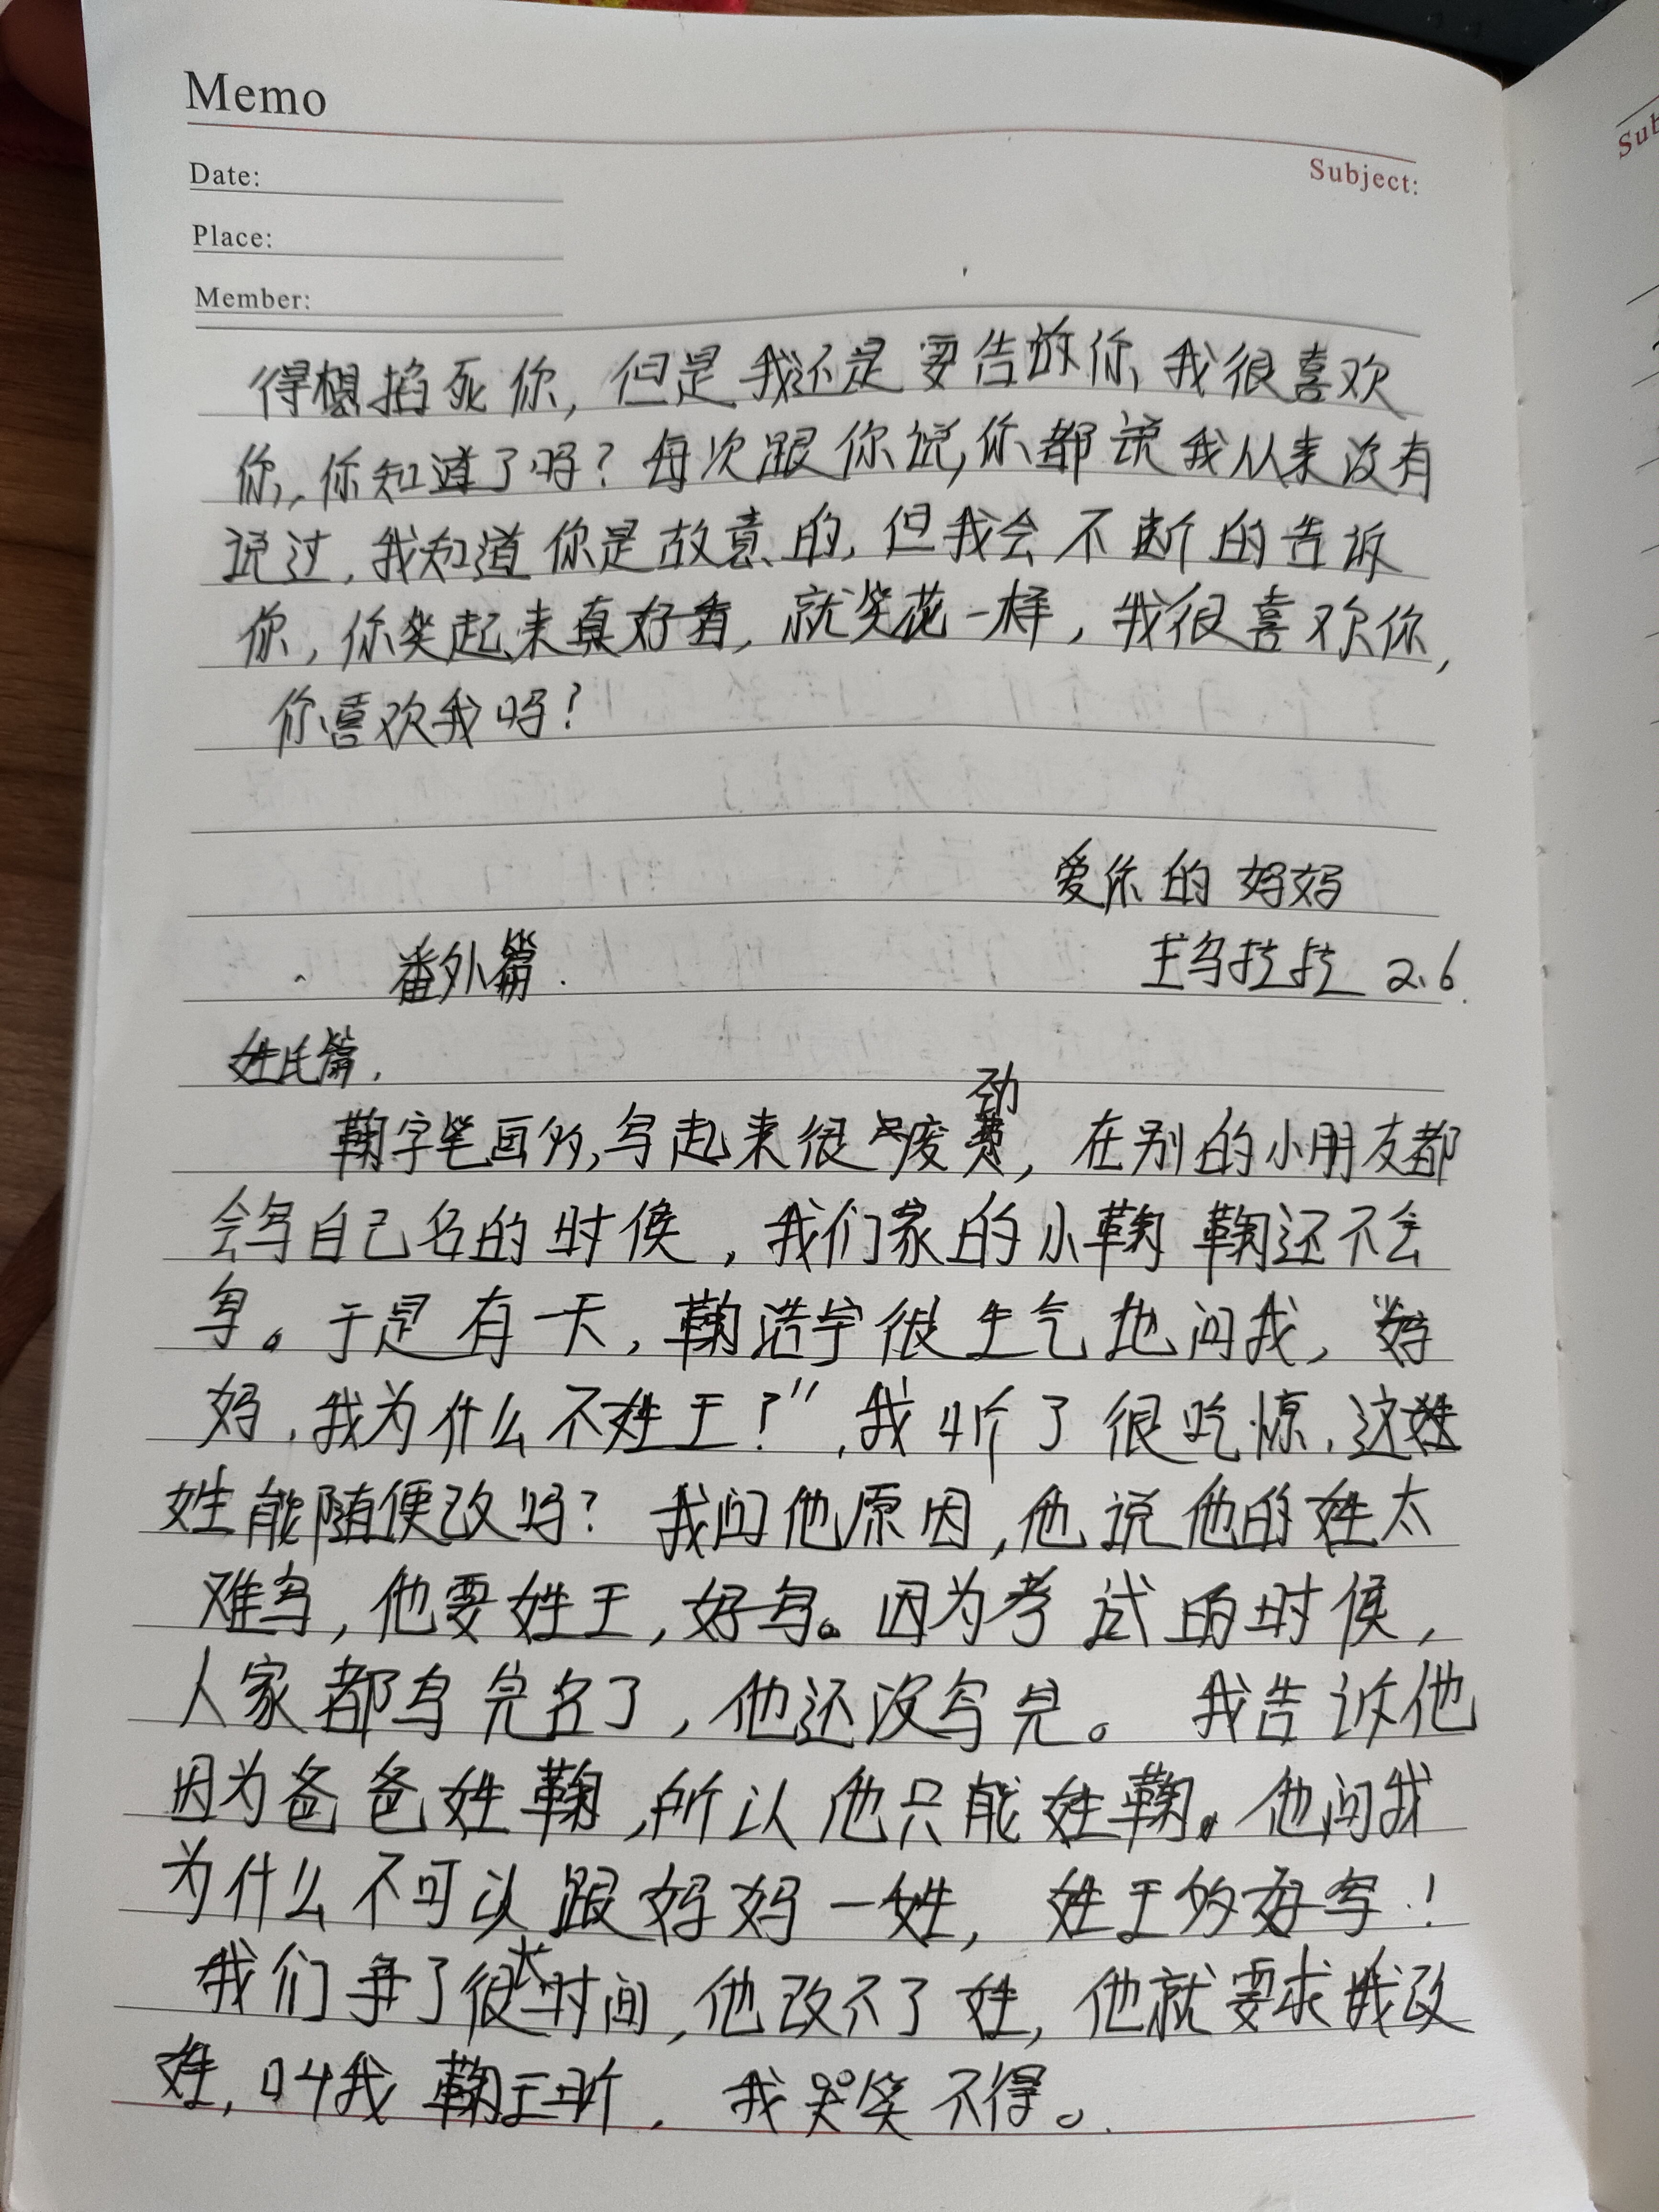 Memo
Subject:
Date:
Place:
Member:
得想掐死你,但是我还是要告诉你,我很喜欢
你,你知道了吗?每次跟你说,你都说我从来没有
说过,我知道你是故意的,但我会不断的告诉
你,你笑起来真好看,就笑花一样,我很喜欢你,
你喜欢我吗?
爱你的妈妈
番外篇.
王乌拉拉 2.6.
姓氏篇.
鞠字笔画多,写起来很废劲,在别的小朋友都
会写自己名的时候,我们家的小鞠鞠还不会
写。于是有一天,鞠浩宇很生气地问我,"妈
妈,我为什么不姓王?",我听了很吃惊,这姓
姓能随便改吗?我问他原因,他说他的姓太
难写,他要姓王,好写。因为考试的时候,
人家都写完名了,他还没写完。我告诉他
因为爸爸姓鞠,所以他只能姓鞠。他问我
为什么不可以跟妈妈一姓,姓王多好写!
我们争了很长时间,他改不了姓,他就要求我改
姓,叫我鞠王昕,我哭笑不得。